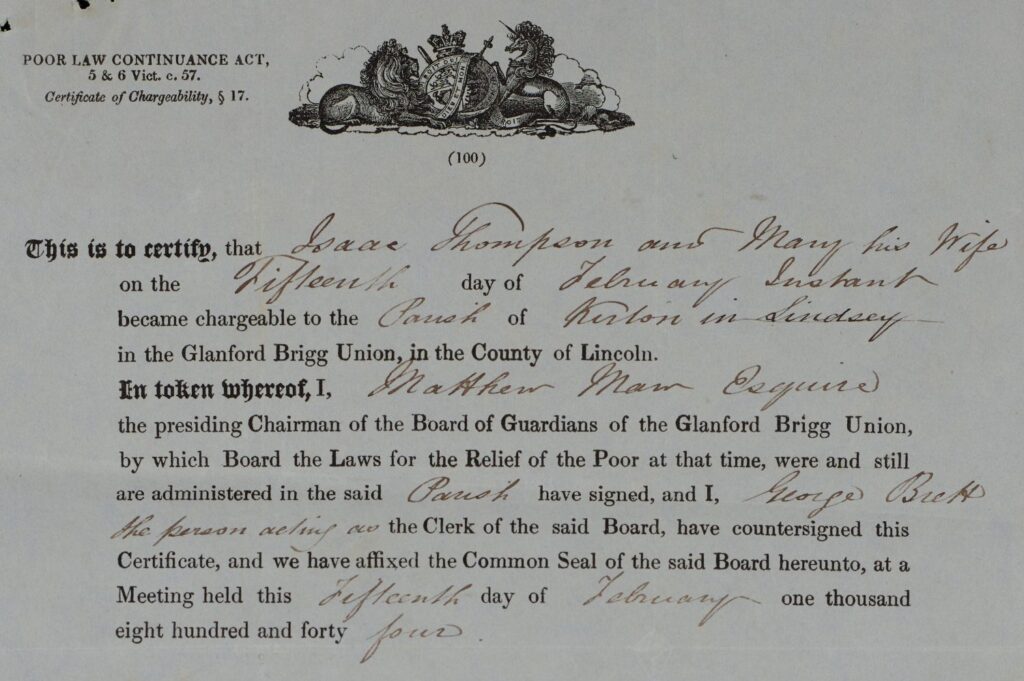 POOR LAW CONTINUANCE ACT,
5 & 6 Vict. c. 57.
Certificate of Chargeability, § 17.
(100)
This is to certify, that Isaac Thompson and Mary his Wife
on the Fifteenth day of February Instant
became chargeable to the Parish of Kirton in Lindsey
in the Glanford Brigg Union, in the County of Lincoln.
In token whereof, I, Matthew Maw Esquire
the presiding Chairman of the Board of Guardians of the Glanford Brigg Union,
by which Board the Laws for the Relief of the Poor at that time, were and still
are administered in the said Parish have signed, and I, George Brett
the person acting as the Clerk of the said Board, have countersigned this
Certificate, and we have affixed the Common Seal of the said Board hereunto, at a
Meeting held this Fifteenth day of February one thousand
eight hundred and forty four.